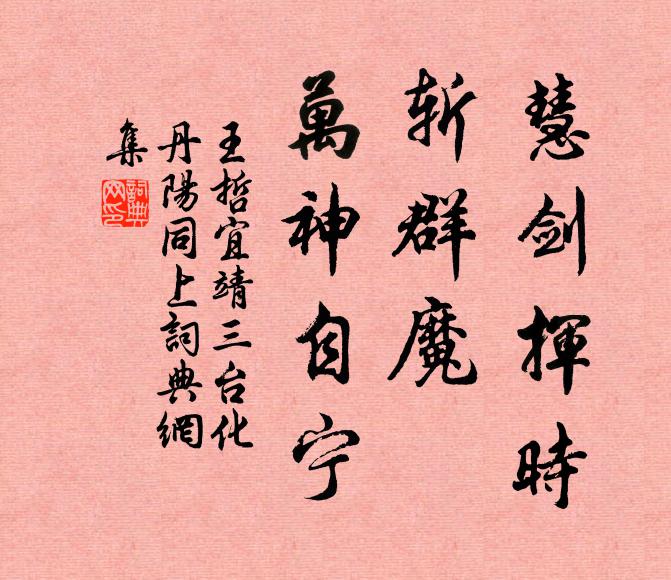 慧剑揮時
斩群魔
萬神自宁
王哲宜靖三台化
丹陽同上詞典網
集
詞典
网印